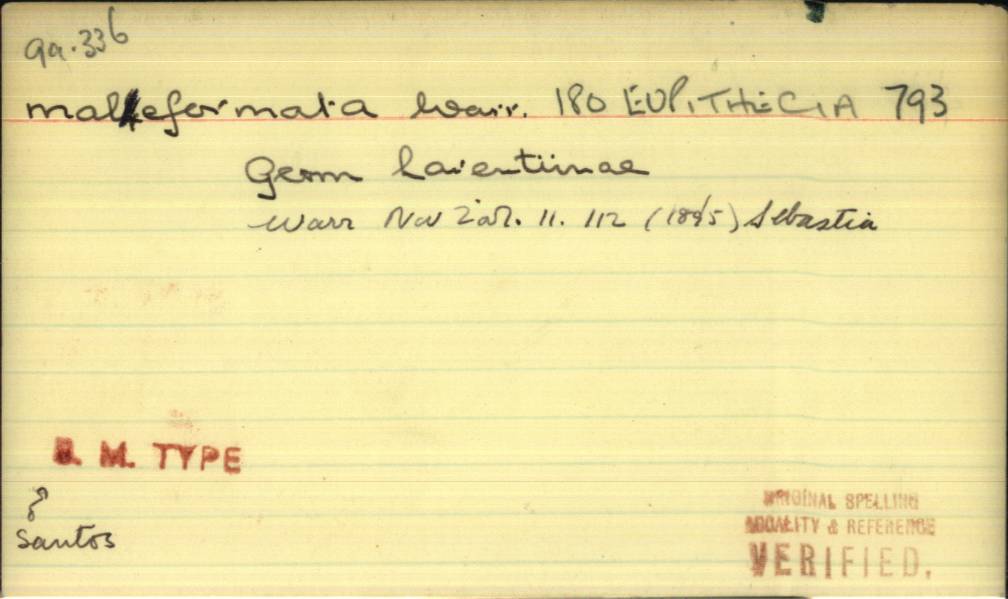 99.336
maleformata Warr. 180 EUPITHECIA 793
Geom Larentiinae
Warr Nov Zool. 11. 112 (1895) Sebastia
B. M. TYPE
Santos
ORIGINAL SPELLING
MODALITY & REFERENCE
VERIFIED.